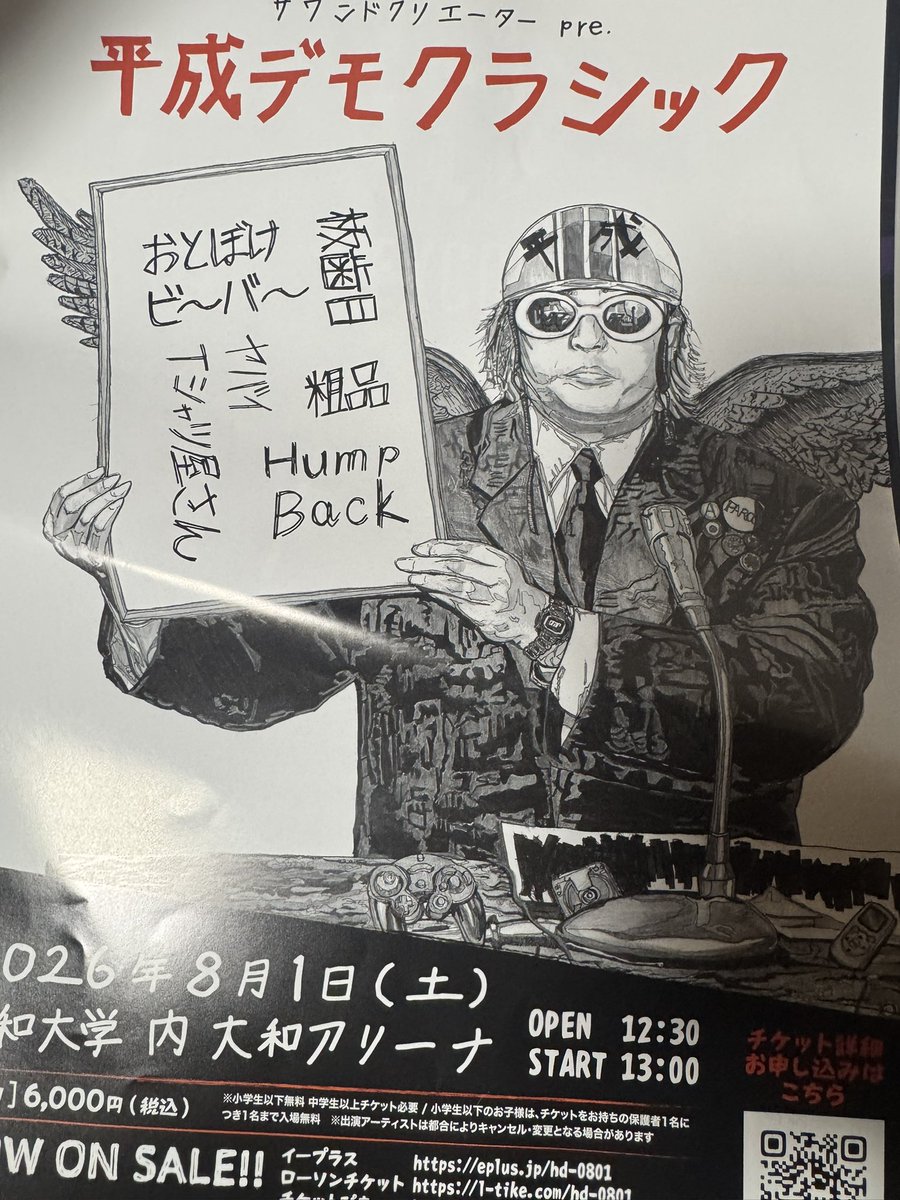 サウンドクリエーター pre.
平成デモクラシック
平成
板歯目
粗品
Hump
Back
おとぼけ
ビ～バ～
ヤバイ
Tシャツ屋さん
PARCO
2026年8月1日(土)
和大学 内 大和アリーナ
OPEN 12:30
START 13:00
チケット詳細
お申し込みは
こちら
] 6,000円(税込)
※小学生以下無料 中学生以上チケット必要 / 小学生以下のお子様は、チケットをお持ちの保護者1名に
つき1名まで入場無料 ※出演アーティストは都合によりキャンセル・変更となる場合があります
OW ON SALE!!
イープラス https://eplus.jp/hd-0801
ローソンチケット https://l-tike.com/hd-0801